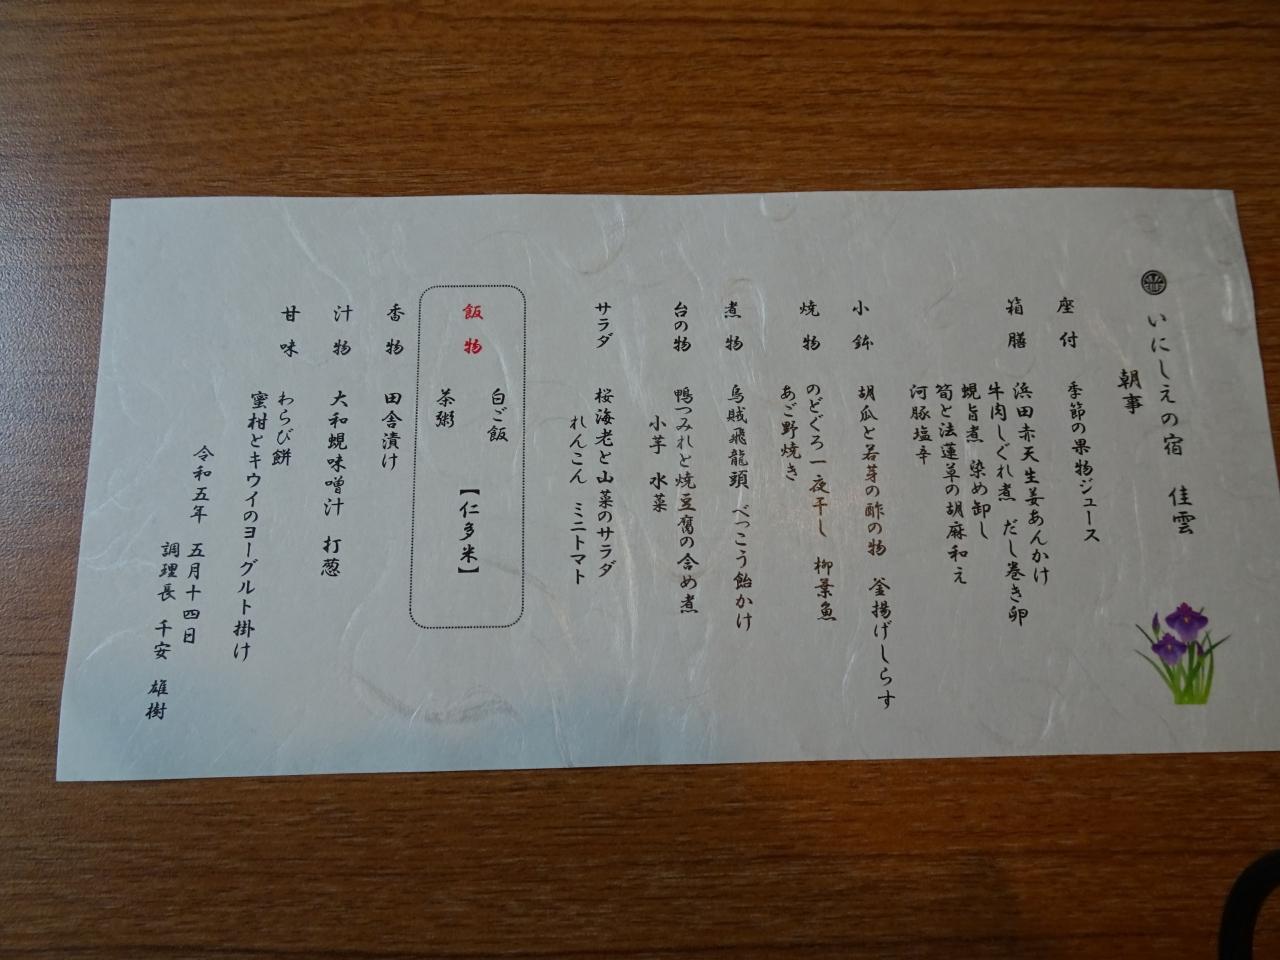 いにしえの宿 佳雲
朝事
座付 季節の果物ジュース
箱膳 浜田赤天生姜あんかけ
牛肉しぐれ煮 だし巻き卵
蜆旨煮 染め卸し
筍と法蓮草の胡麻和え
河豚塩辛
小鉢 胡瓜と若芽の酢の物 釜揚げしらす
焼物 のどぐろ一夜干し 柳葉魚
あご野焼き
煮物 烏賊飛龍頭 べっこう飴かけ
台の物 鴨つみれと焼豆腐の含め煮
小芋 水菜
サラダ 桜海老と山菜のサラダ
れんこん ミニトマト
飯物 白ご飯
【仁多米】
茶粥
香物 田舎漬け
汁物 大和蜆味噌汁 打葱
甘味 わらび餅
蜜柑とキウイのヨーグルト掛け
令和五年 五月十四日
調理長 千安 雄樹